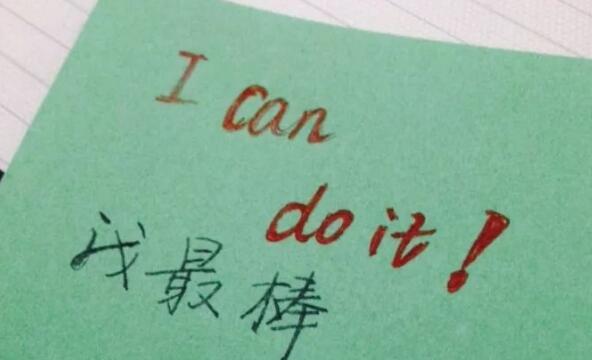 I can
do it!
我最棒